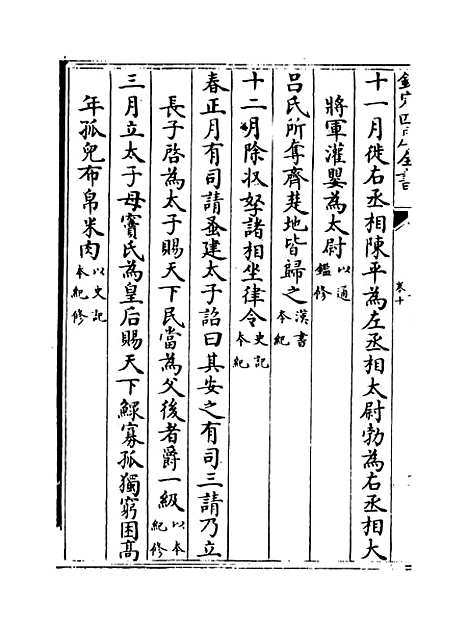 欽定四庫全書
卷十
十一月徙右丞相陳平為左丞相太尉勃為右丞相大
將軍灌嬰為太尉以通鑑修
吕氏所奪齊楚地皆歸之漢書本紀
十二月除收孥諸相坐律令史記本紀
春正月有司請蚤建太子詔曰其安之有司三請乃立
長子啓為太子賜天下民當為父後者爵一級以本紀修
三月立太子母竇氏為皇后賜天下鰥寡孤獨窮困高
年孤兒布帛米肉以史記本紀修